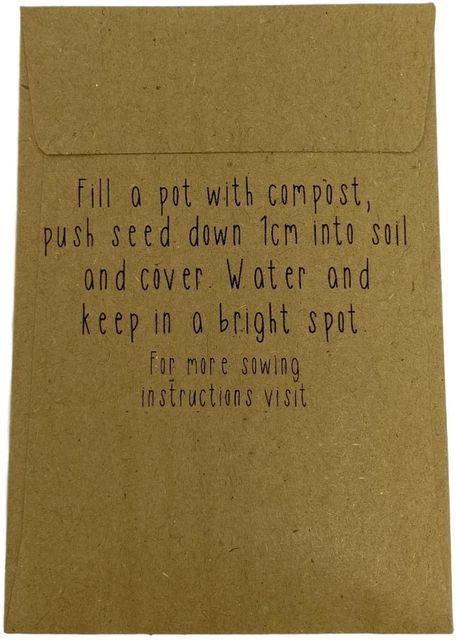 Fill a pot with compost,
push seed down 1cm into soil
and cover. Water and
keep in a bright spot.
For more sowing
instructions visit